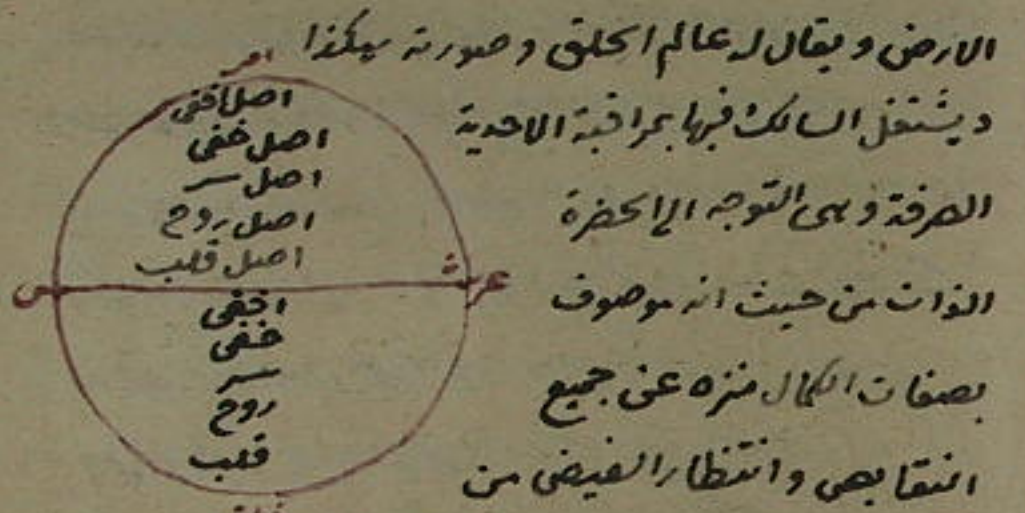 الارض ويقال له عالم الخلق وصورته هكذا
ويشتغل السالك فيها بمراقبة الاحدية
الصرفة وهى التوجه الى الحضرة
الذات من حيث انه موصوف
بصفات الكمال منزه عن جميع
النقايص وانتظار الفيض من
امر
اصل اخفى
اصل خفى
اصل سر
اصل روح
اصل قلب
عرش
اخفى
خفى
سر
روح
قلب